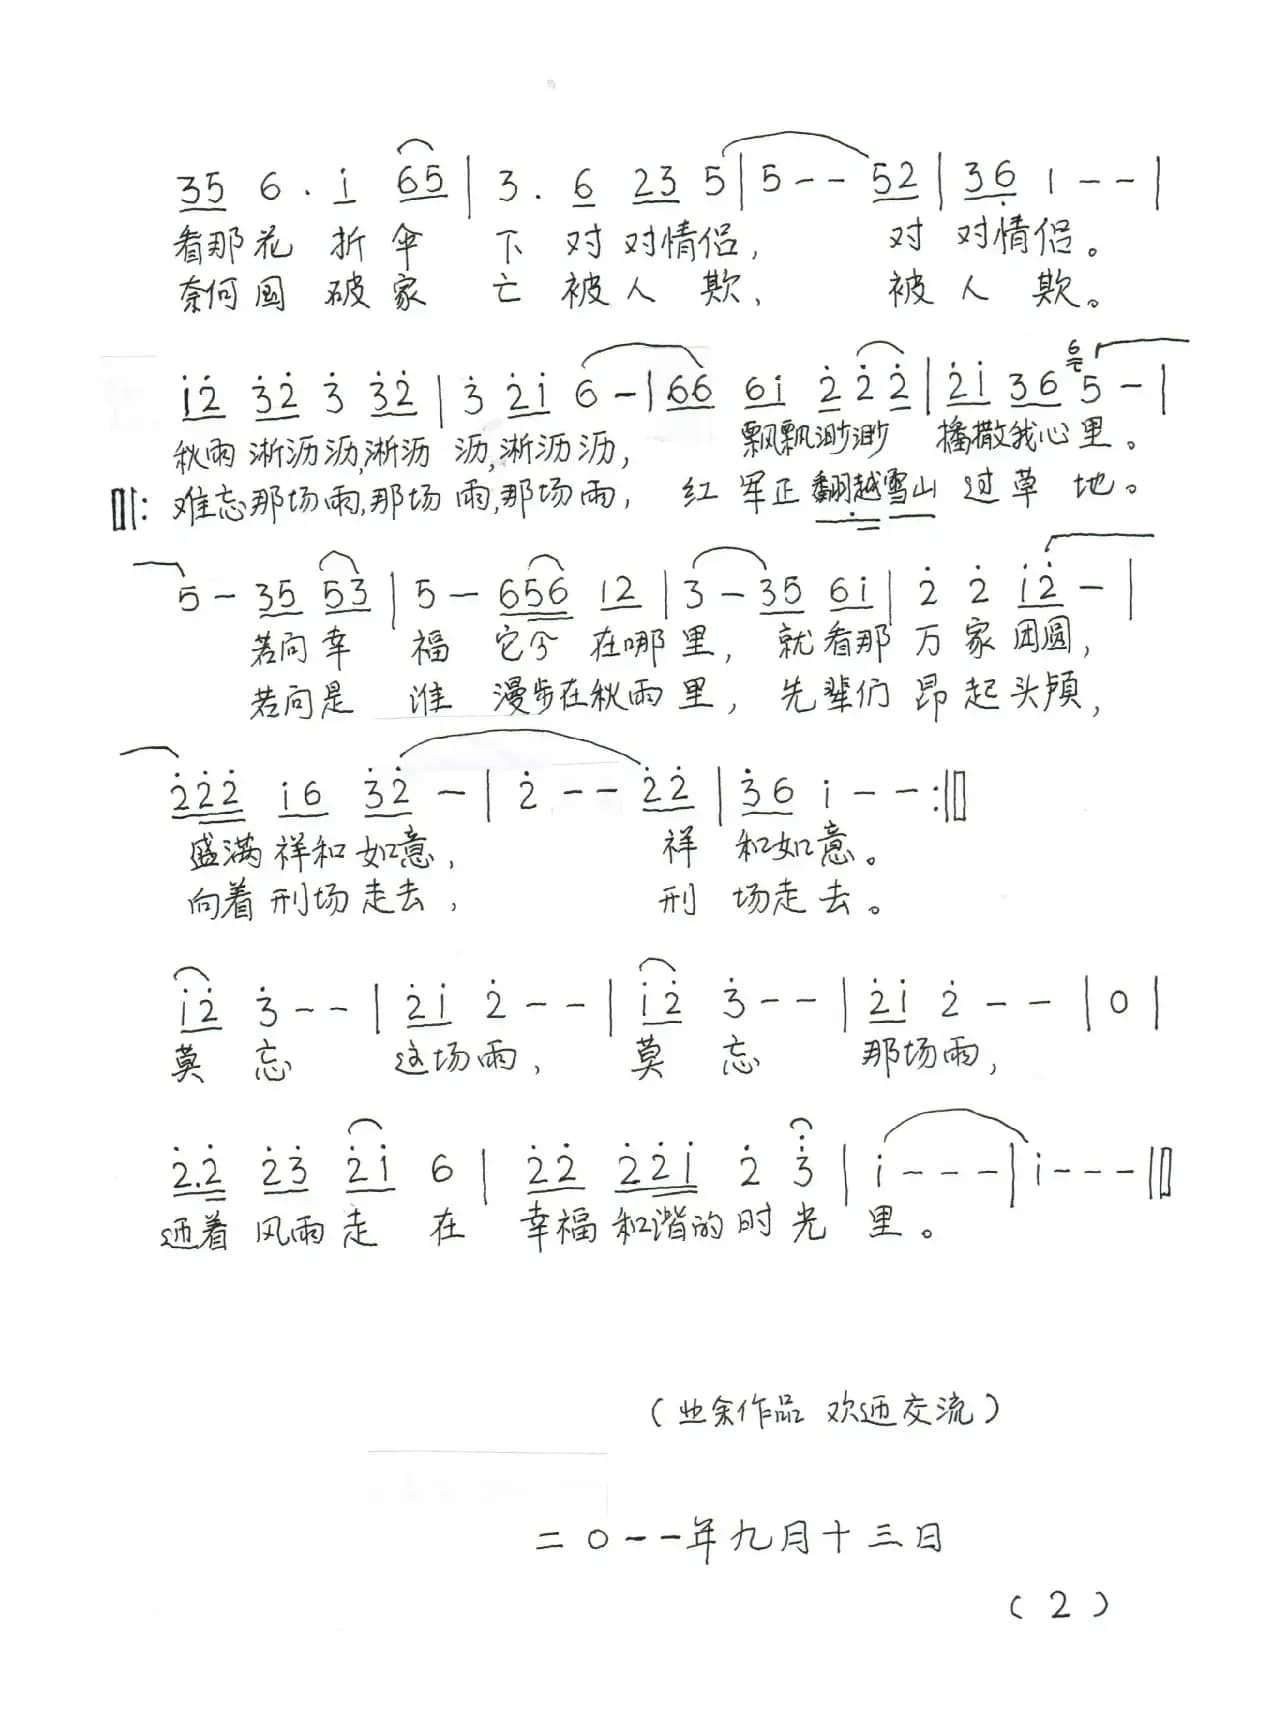 35 6 . i 65 | 3 . 6 23 5 | 5 - - 52 | 36 1 - - |
看那花 折伞 下 对 对情侣, 对 对情侣。
奈何国 破家 亡 被人 欺, 被人 欺。
6
i2 32 3 32 | 3 2i 6 - | 66 6i 2 22 | 2i 36 5 - |
秋雨淅沥沥,淅沥 沥,淅沥沥, 飘飘渺渺 播撒我心里。
难忘那场雨,那场雨,那场雨, 红军正翻越雪山 过草地。
5 - 35 53 | 5 - 656 12 | 3 - 35 6i | 2 2 i2 - |
若问幸 福 它今 在哪里, 就看那 万家团圆,
若问是 谁 漫步在秋雨里, 先辈们 昂起头颅,
222 i6 32 - | 2 - - 22 | 36 i - - :||
盛满祥和如意, 祥 和如意。
向着刑场走去, 刑 场走去。
i2 3 - - | 2i 2 - - | i2 3 - - | 2i 2 - - | 0 |
莫 忘 这场雨, 莫 忘 那场雨,
2.2 23 2i 6 | 22 22i 2 3 | i - - - | i - - - ||
迎着 风雨走 在 幸福和谐的时光 里。
(业余作品 欢迎交流)
二〇一一年九月十三日
(2)